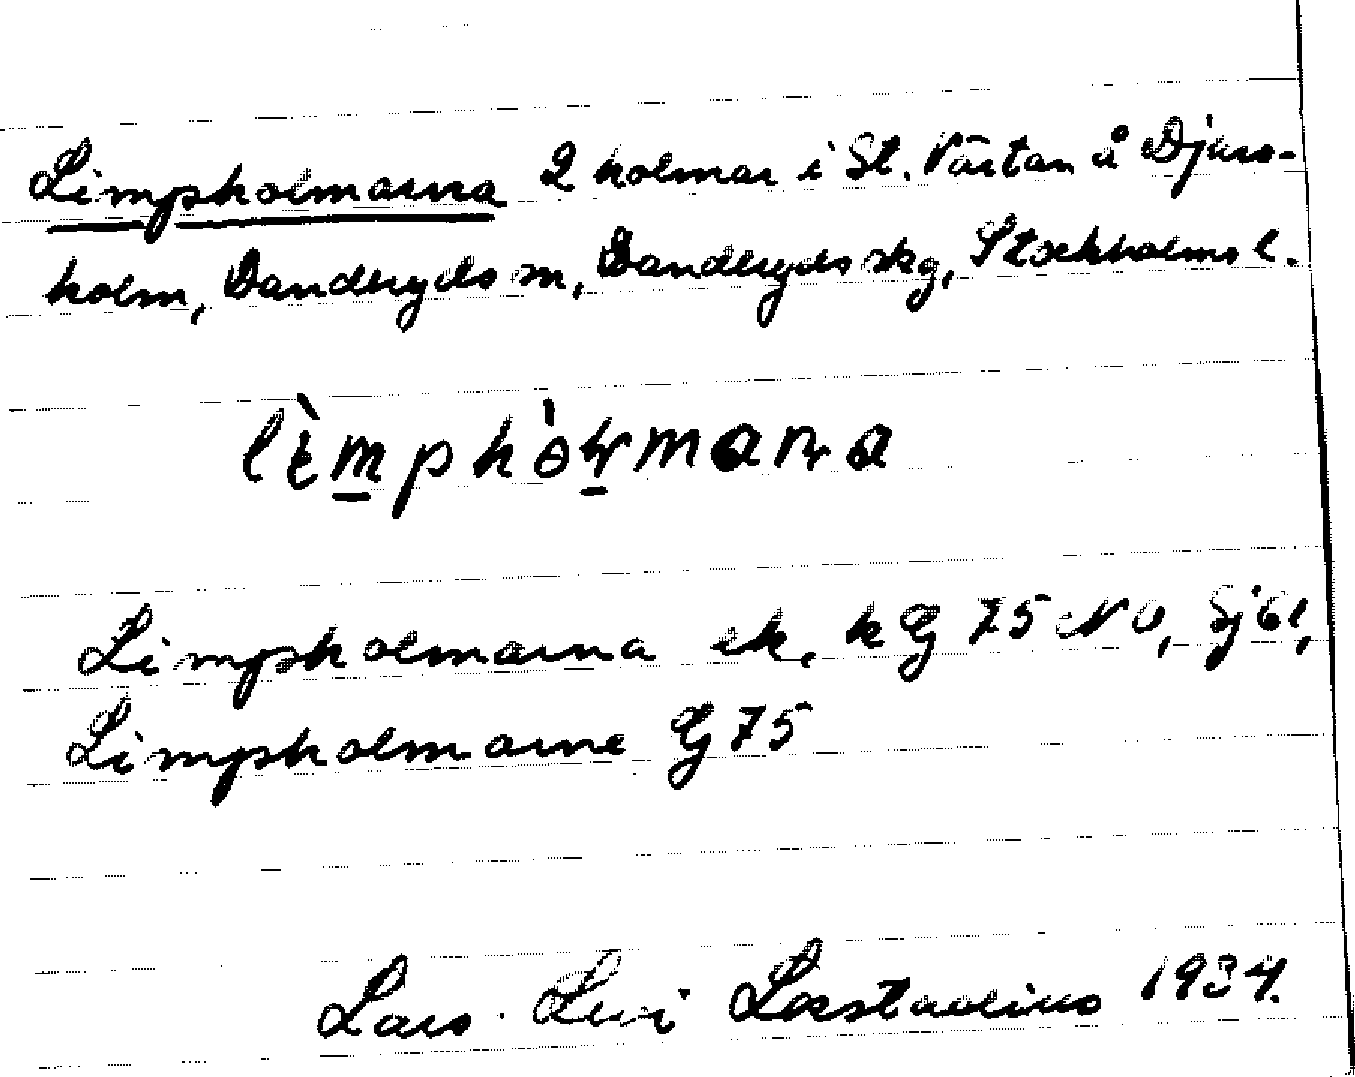 Limpholmarna 2 holmar i St. Värtan å Djurs-
holm, Danderyds sn, Danderyds skg, Stockholms l.
lìmphòlmarna
Limpholmarna ek. kG 75 NO, Sj 61,
Limpholmarne G 75
Lars Levi Læstadius 1934.